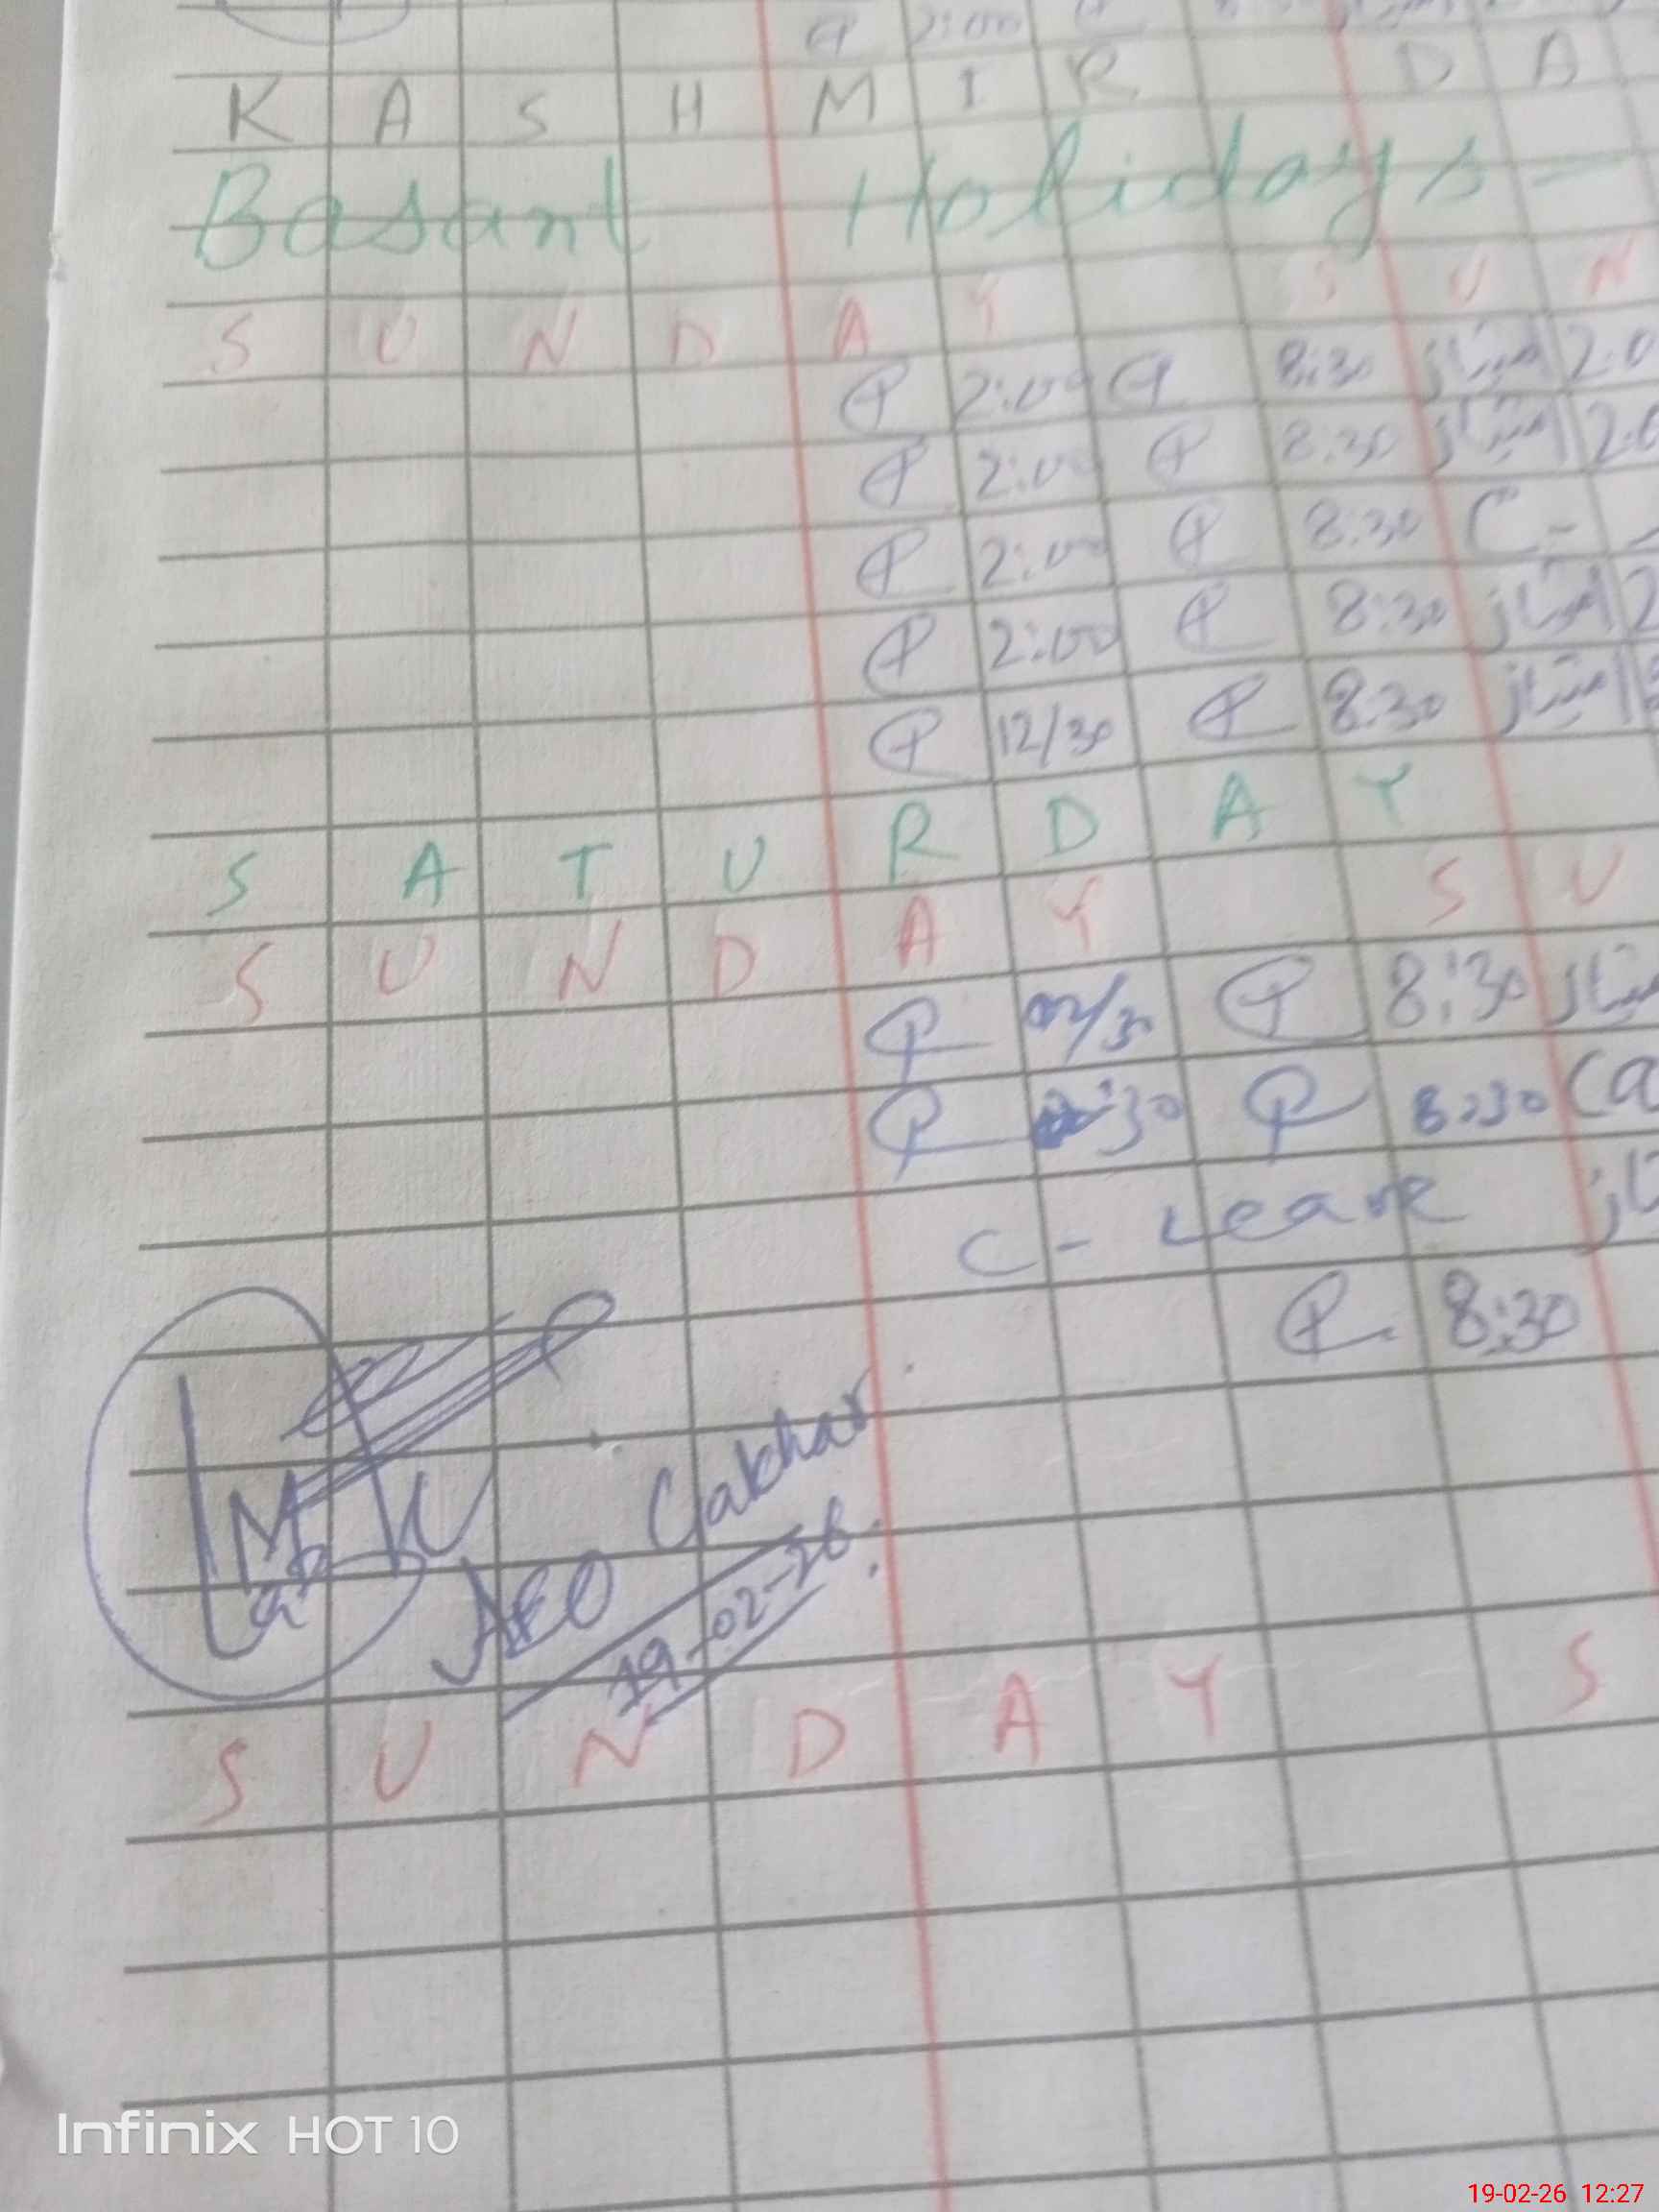 2:00
K A S H M I R D A
Basant Holidays -
S U N D A Y S U N
P 2:00 P 8:30 امتیاز 2:0
P 2:00 P 8:30 امتیاز 2:0
P 2:00 P 8:30 C-
P 2:00 P 8:30 امتیاز 2
P 12/30 P 8:30 امتیاز
S A T U R D A Y
S U N D A Y S U
P /30 P 8:30
P :30 P 8:30 Ca
C - Leave
P 8:30
AEO Gakhar
19-02-26
S U N D A Y S
Infinix HOT 10
19-02-26 12:27